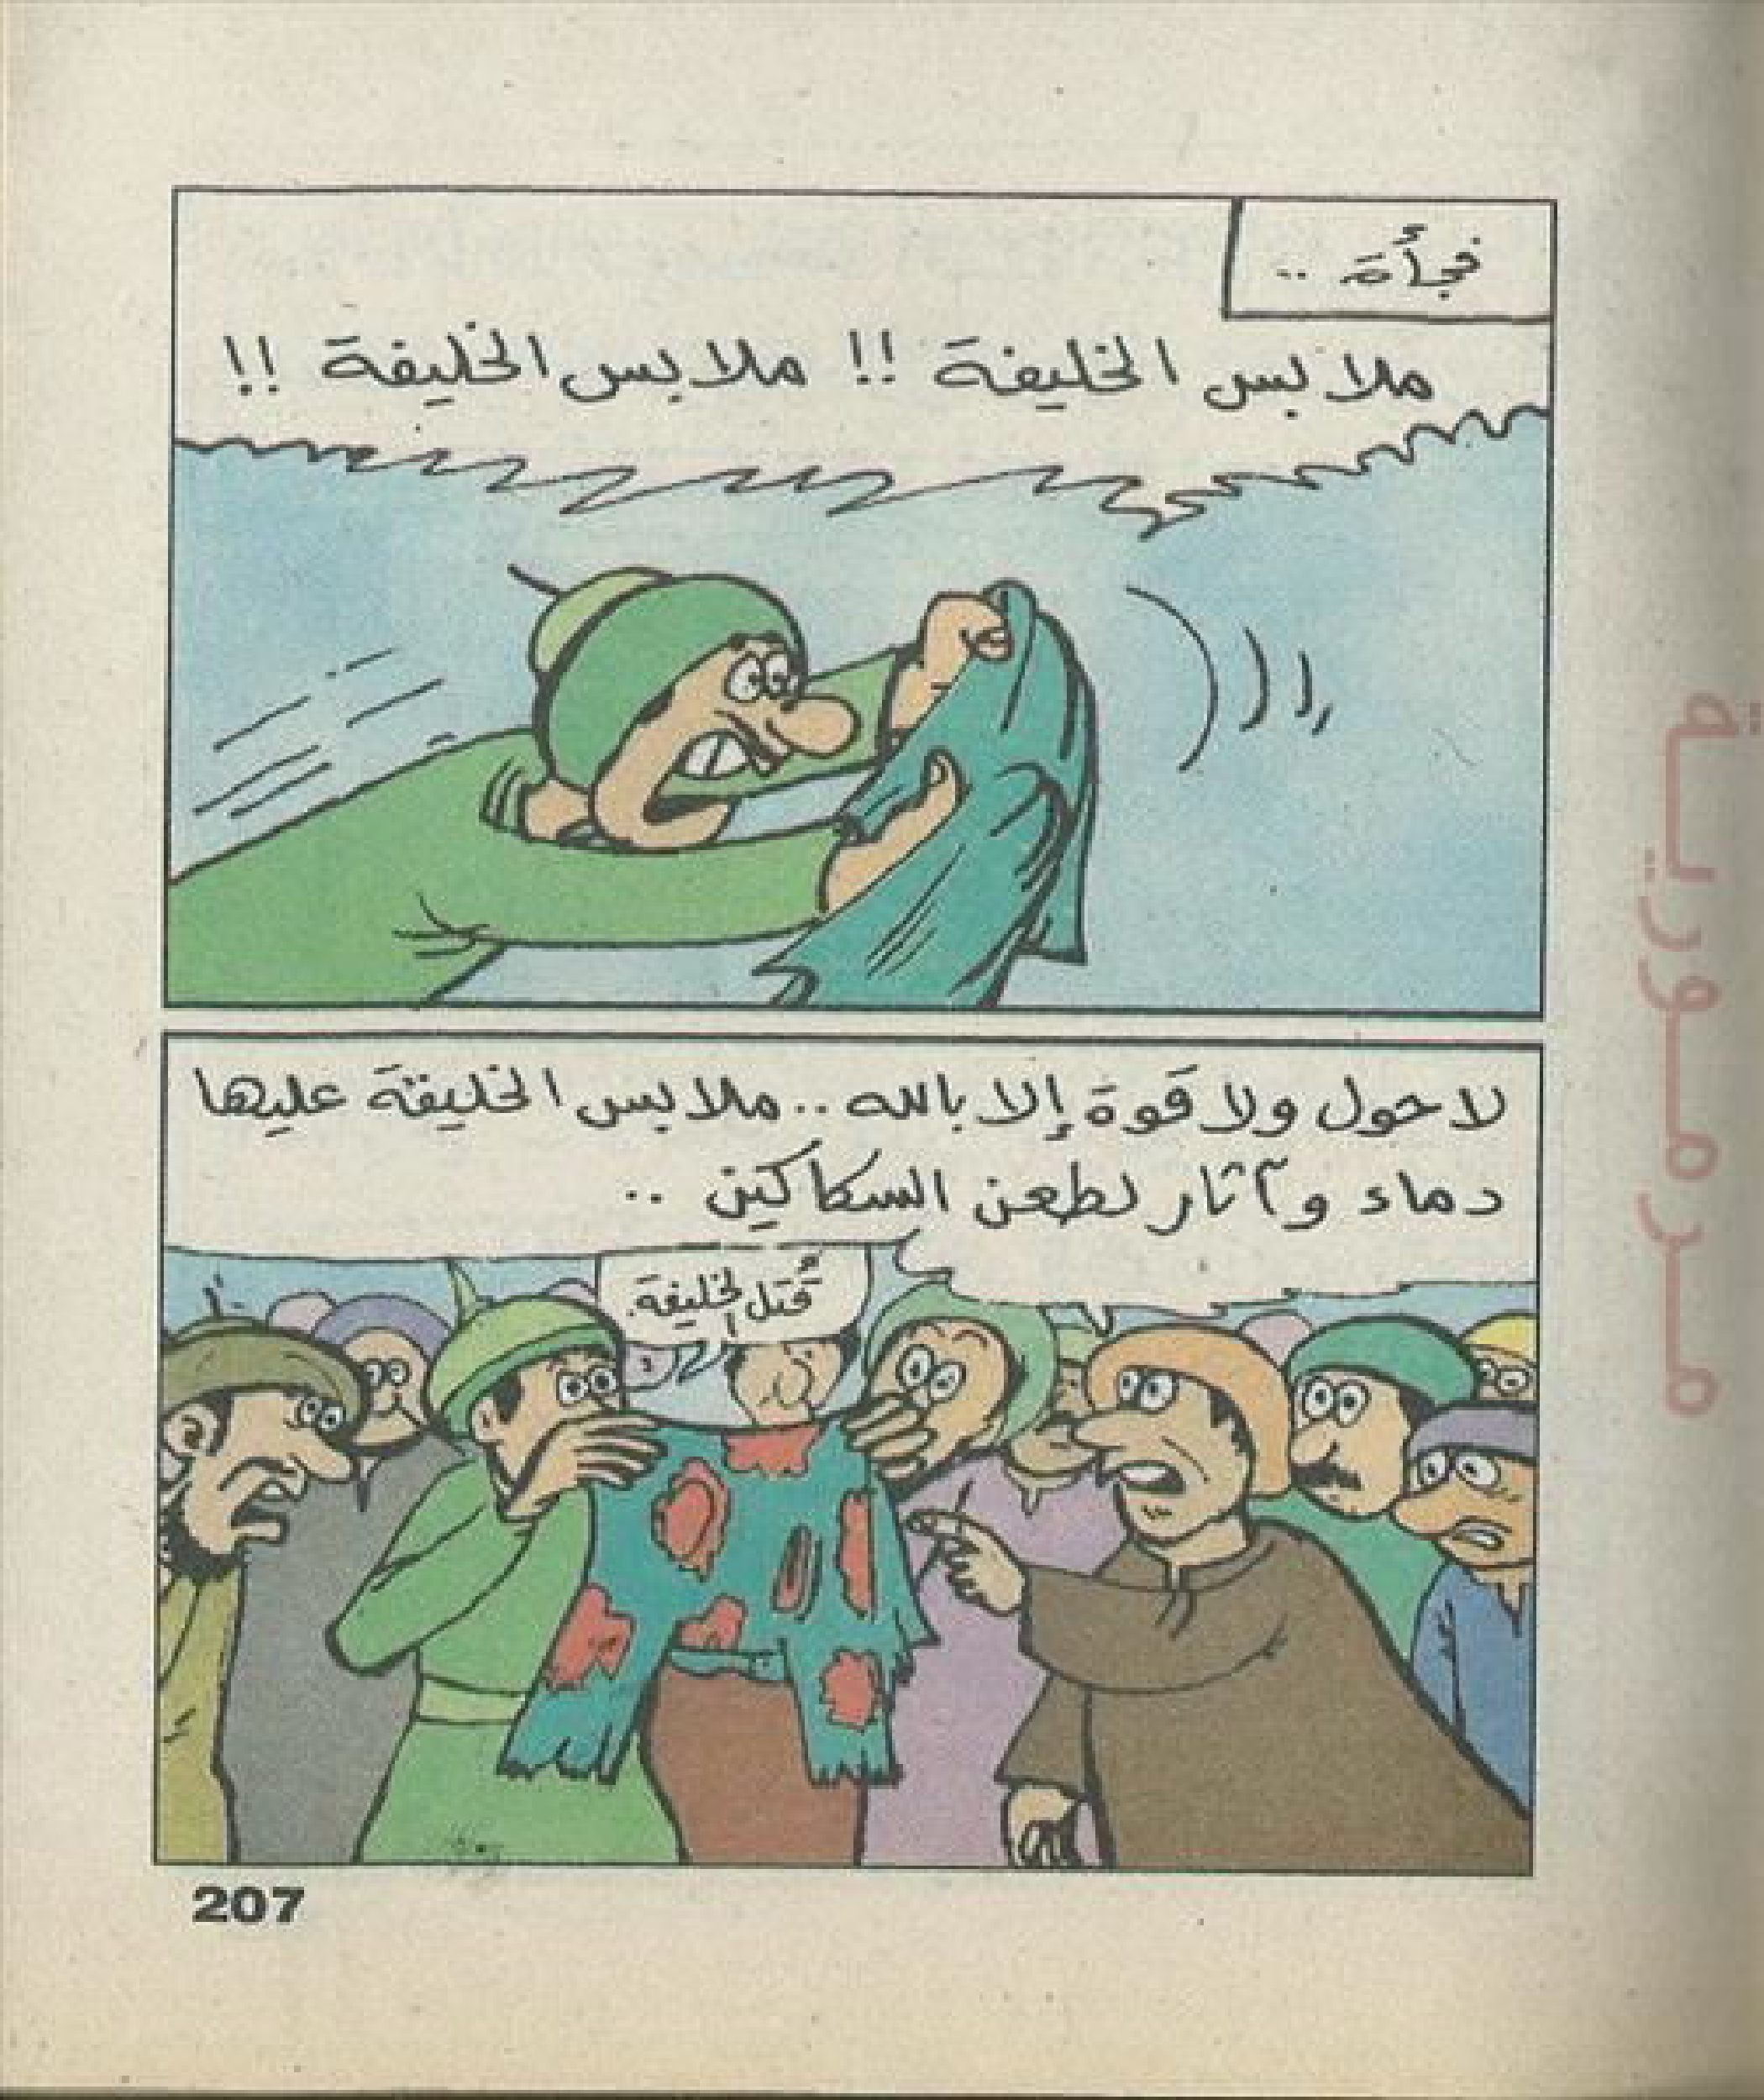 فجأة ..
ملابس الخليفة !! ملابس الخليفة !!
لا حول ولا قوة إلا بالله .. ملابس الخليفة عليها
دماء وآثار لطعن السكاكين ..
قُتل الخليفة.
207
مدرمورية